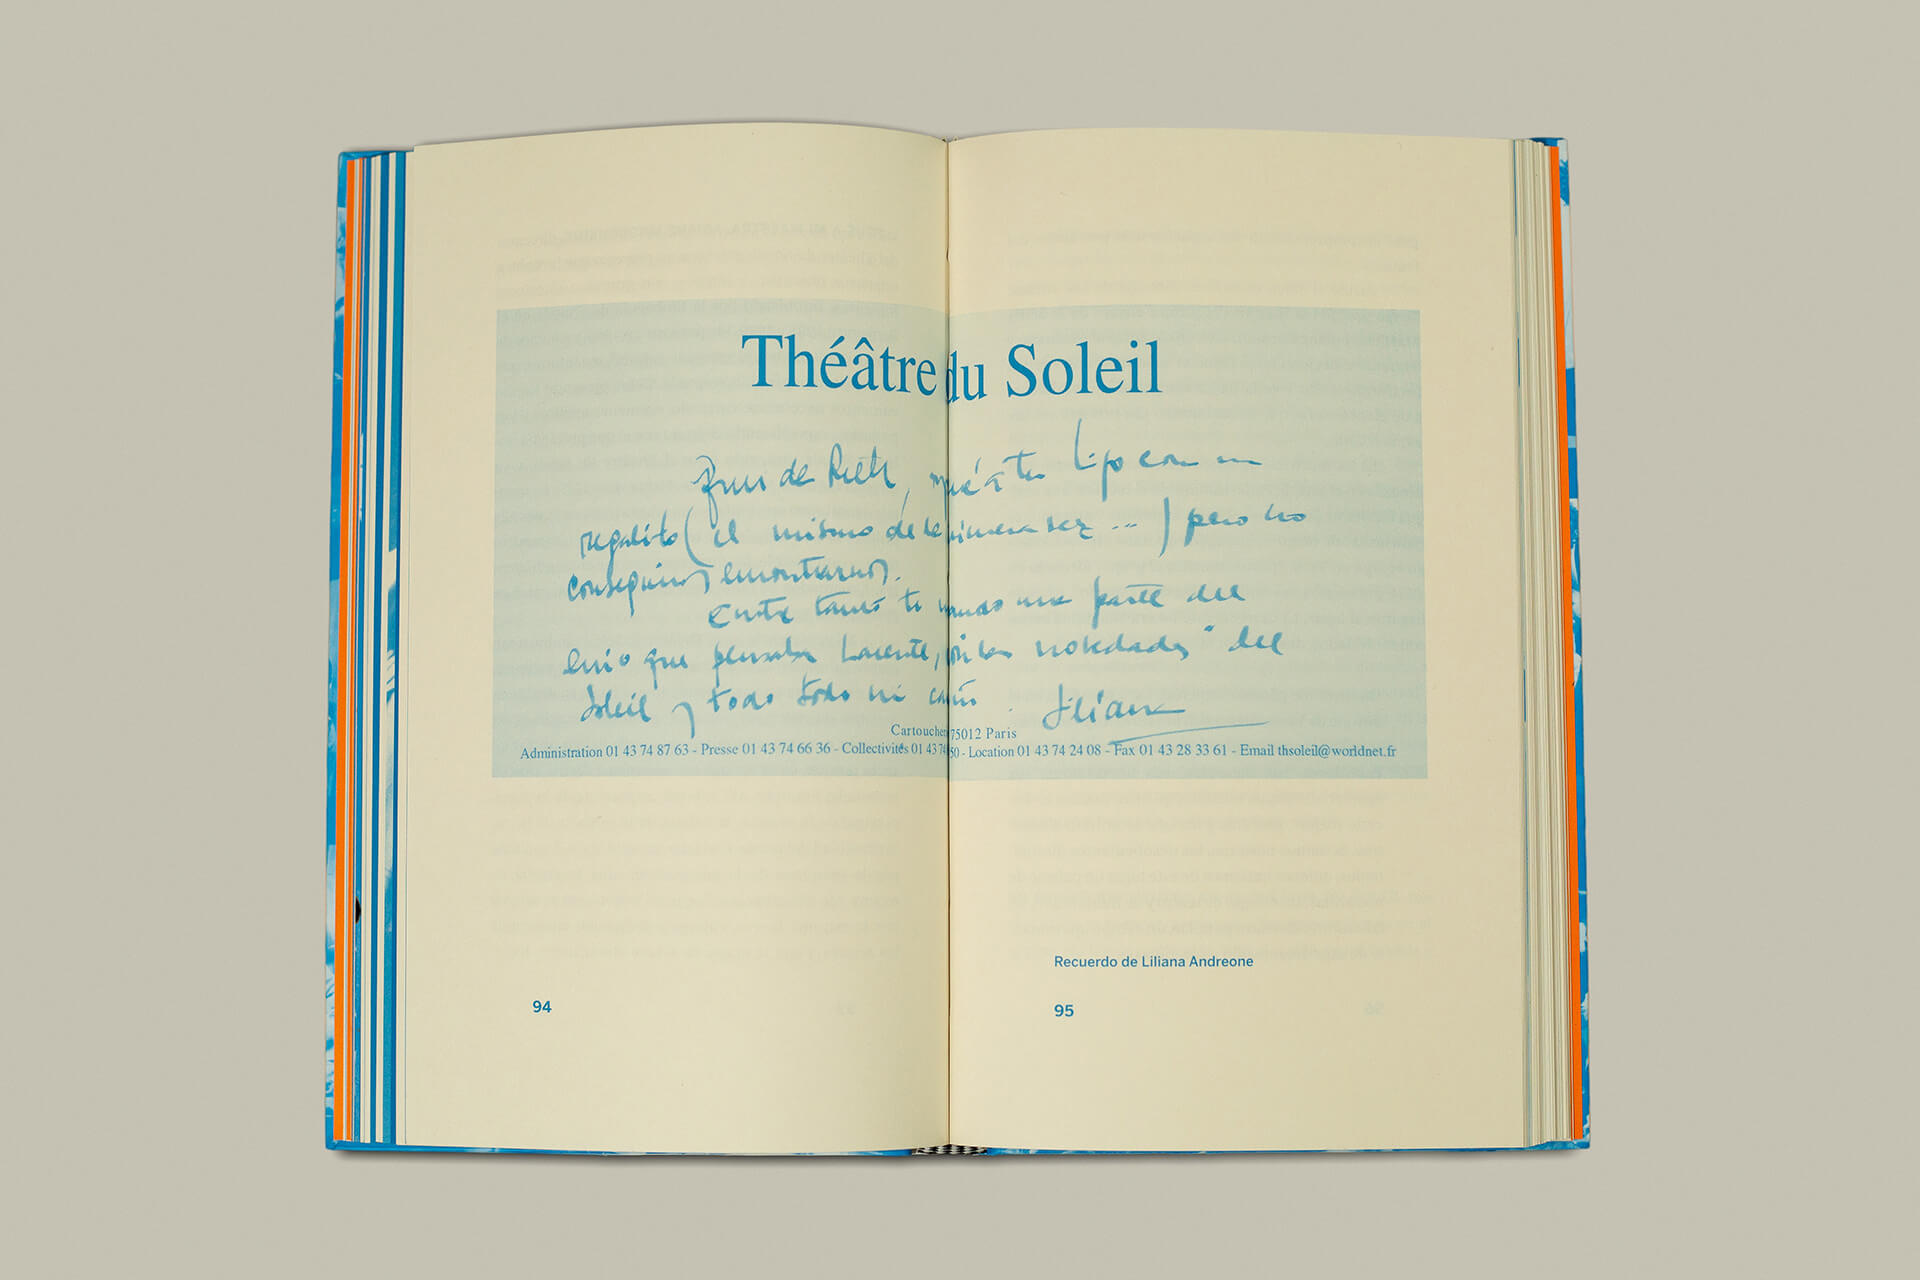 Théâtre du Soleil
de
regalito (el mismo de la primera vez ...) pero no
conseguimos encontrarnos.
Entre tanto te mando una parte del
envío que pensaba hacerte, con las novedades" del
Soleil y todo todo mi cariño. Liliana
Cartoucherie 75012 Paris
Administration 01 43 74 87 63 - Presse 01 43 74 66 36 - Collectivités 01 43 74 50 - Location 01 43 74 24 08 - Fax 01 43 28 33 61 - Email thsoleil@worldnet.fr
Recuerdo de Liliana Andreone
94
95